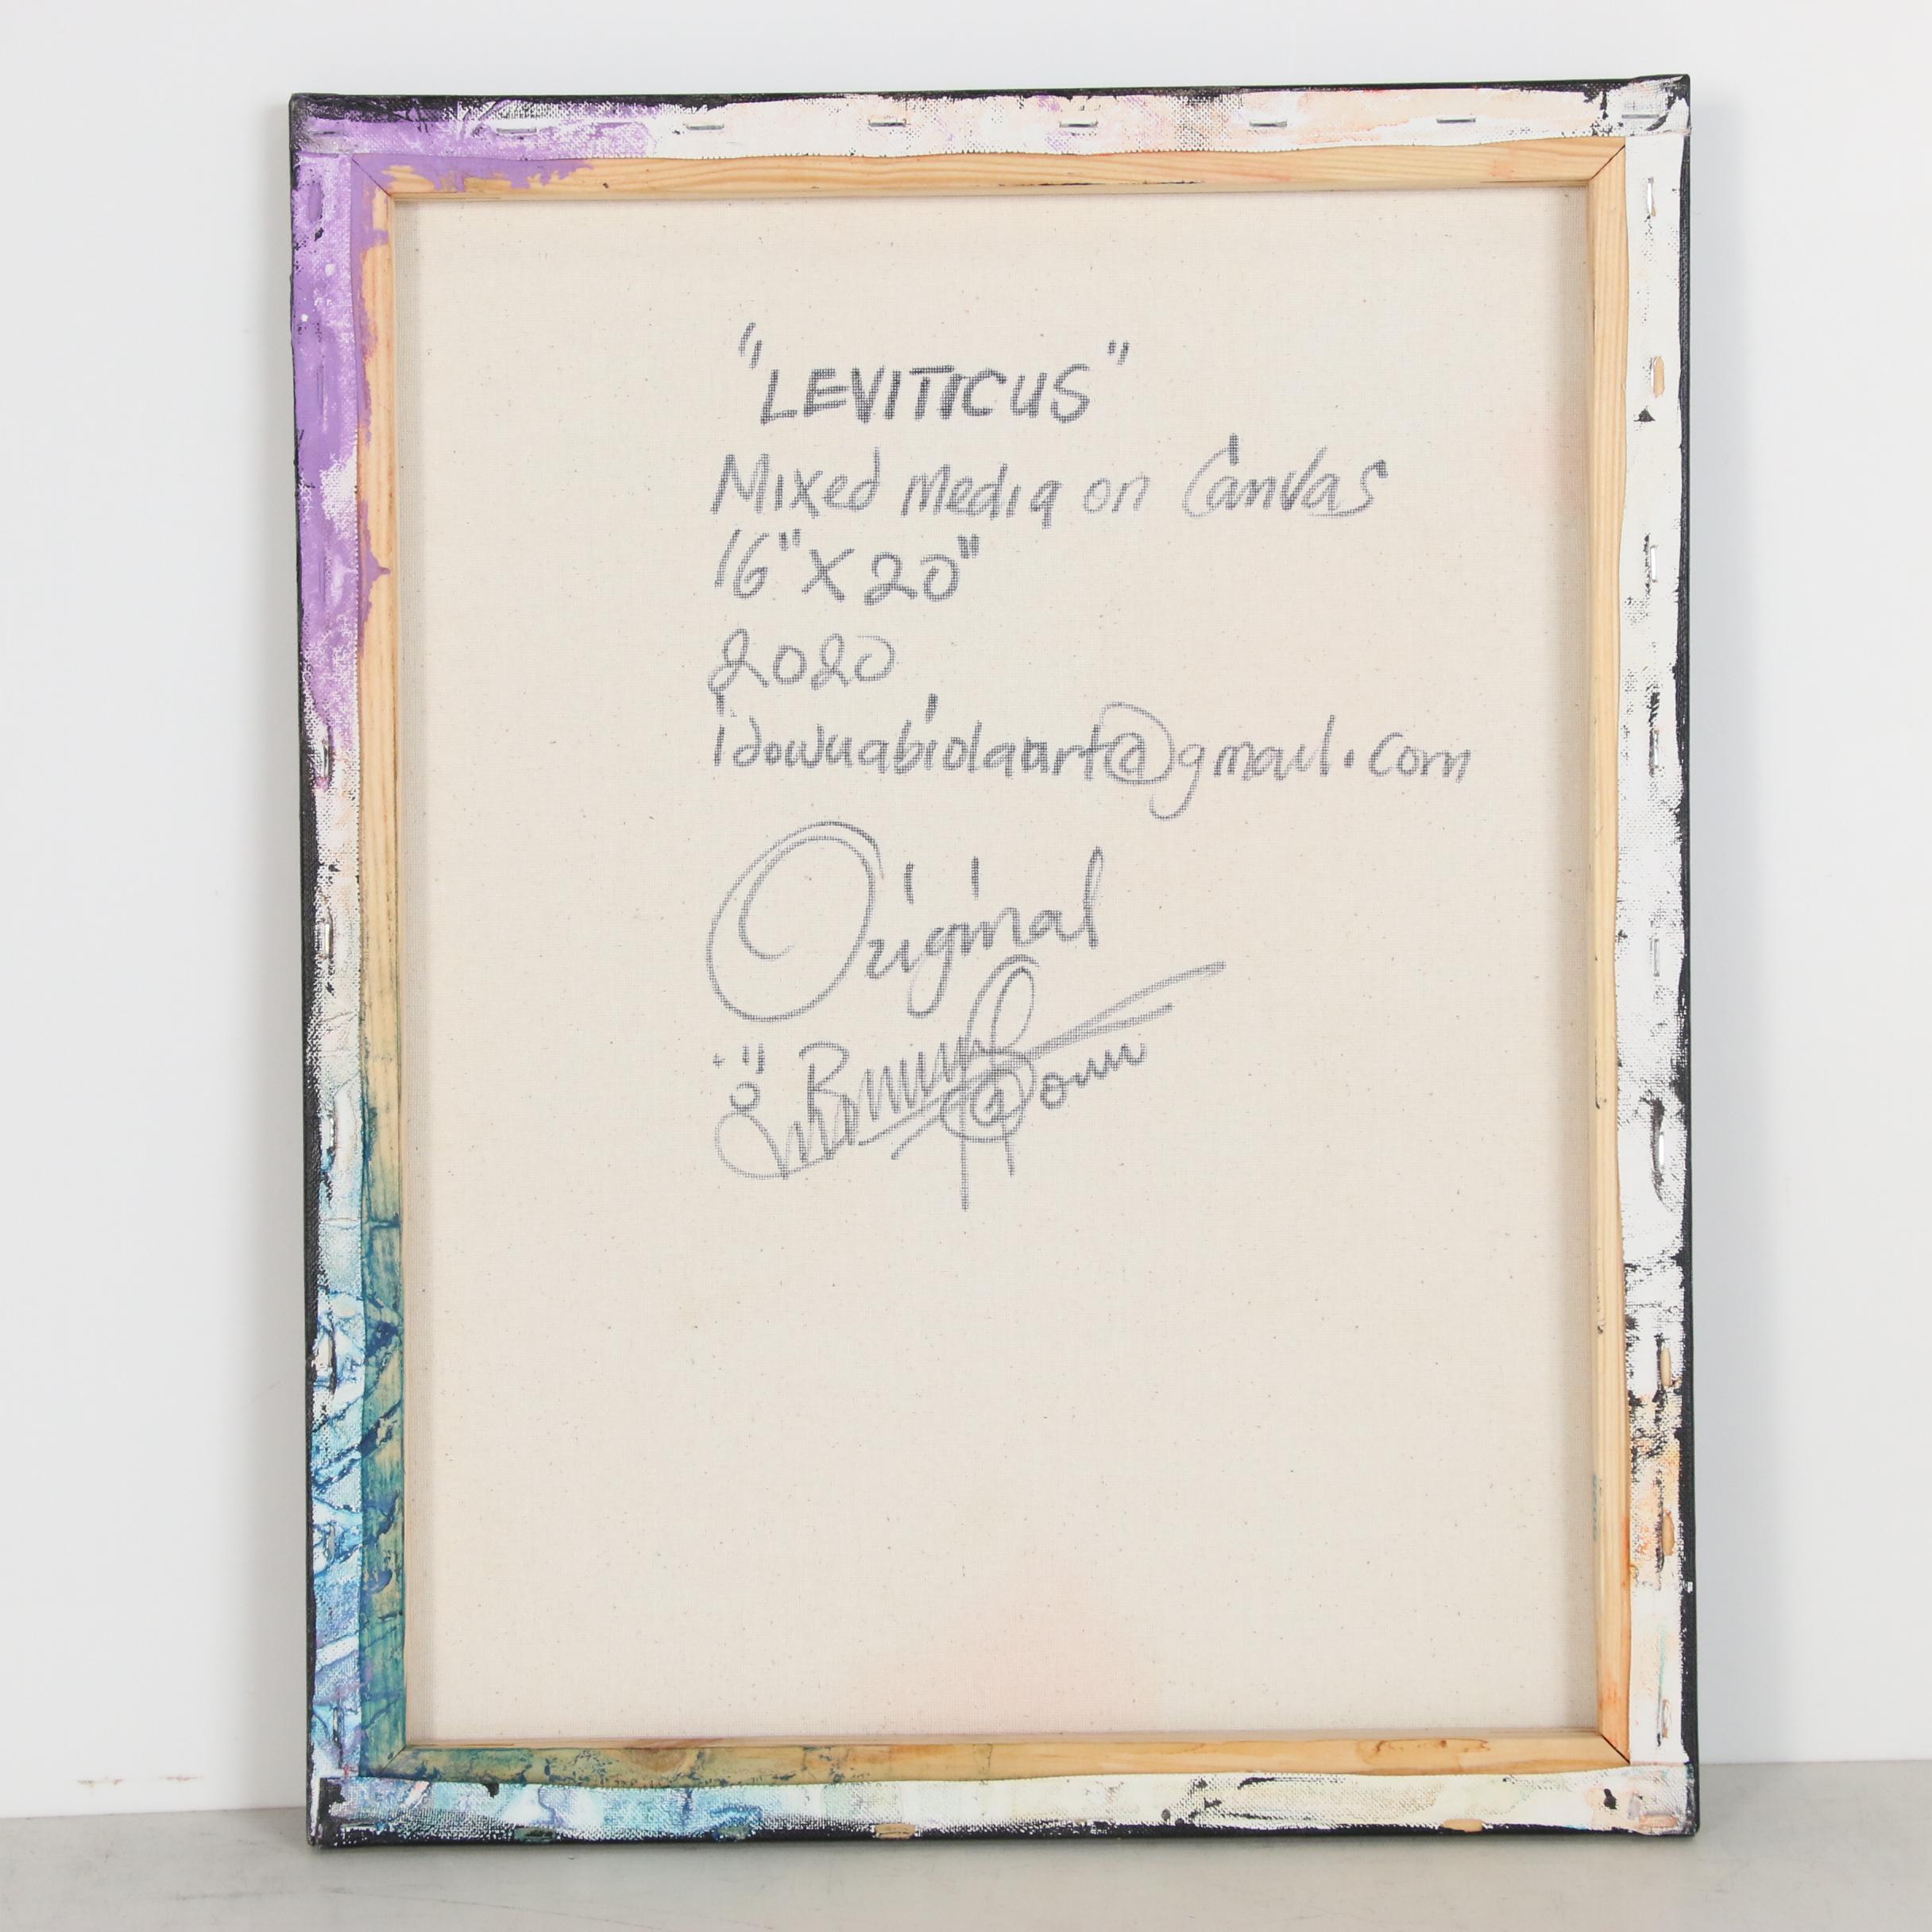 "LEVITICUS"
Mixed Media on Canvas
16" X 20"
2020
idowuabiolaart@gmail.com
Original